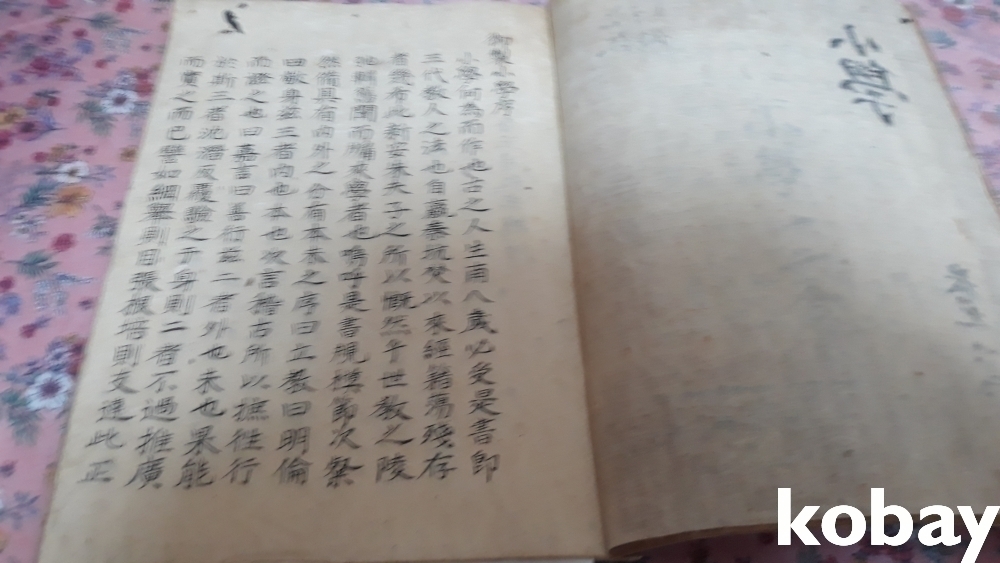 御製小學序
小學何爲而作也古之人生甫八歲必受是書卽
三代敎人之法也自嬴秦坑焚以來經籍蕩殘存
者幾希此新安朱夫子之所以慨然乎世敎之陵
弛輯舊聞而
嗚呼是書規模節次粲
然備具有內外之分有本末之序曰立敎曰明倫
曰敬身玆三者內也本也次言稽古所以摭往行
而證之也曰嘉言曰善行玆二者外也末也果能
於斯三者沈潛反覆驗之于身則二者不過推廣
而實之而已譬如綱擧則目張根培則支達此正
kobay